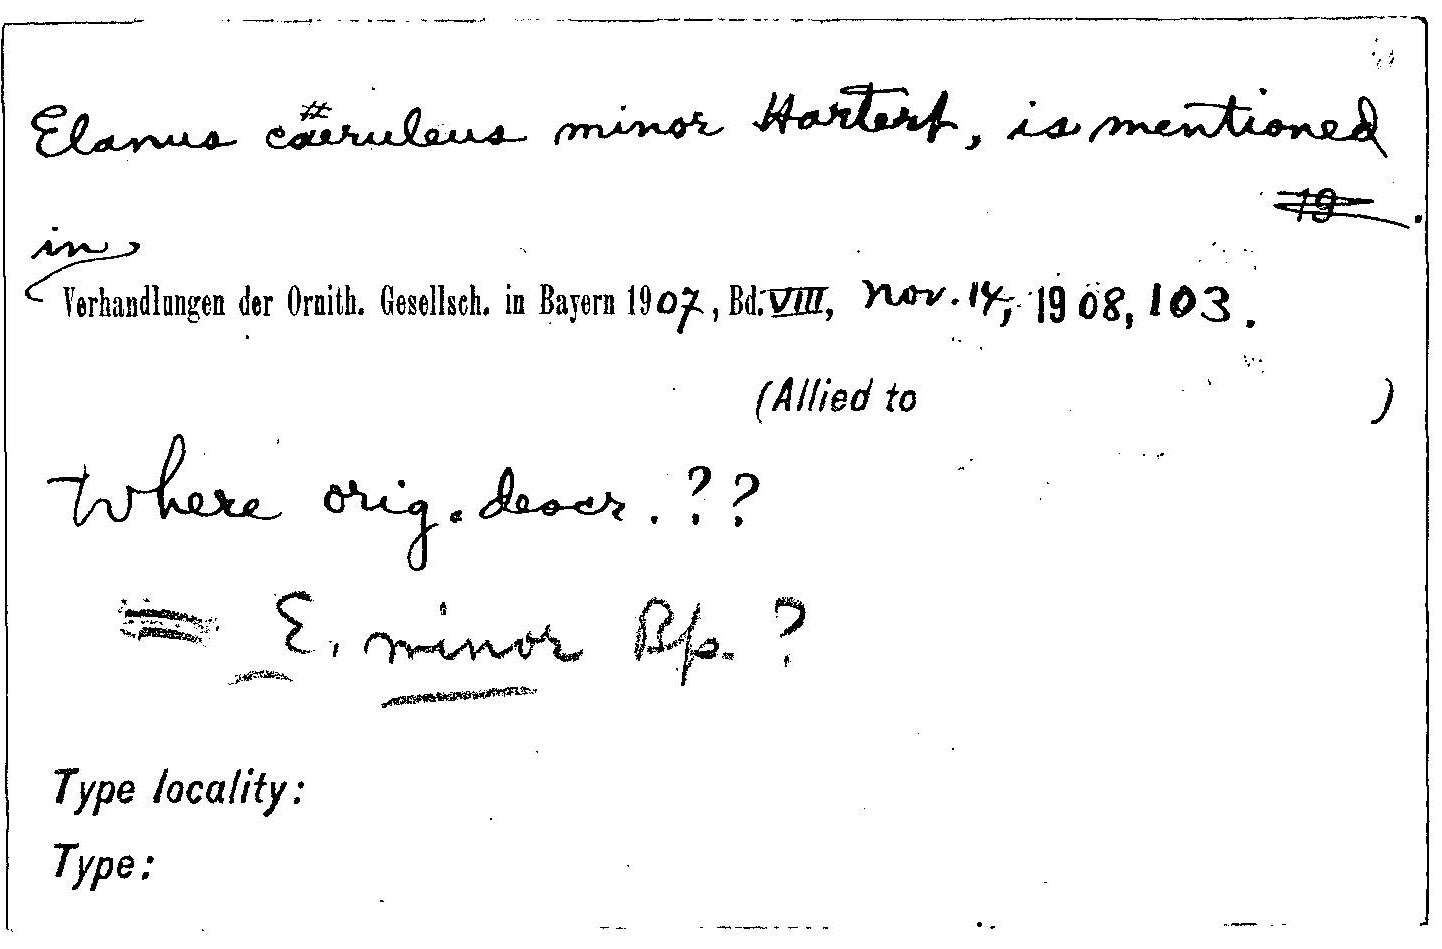 Elanus caeruleus minor Hartert, is mentioned
19 .
in
Verhandlungen der Ornith. Gesellsch. in Bayern 1907, Bd. VIII, nov. 14, 1908, 103.
(Allied to )
Where orig. descr. ??
= E. minor Bp. ?
Type locality:
Type: